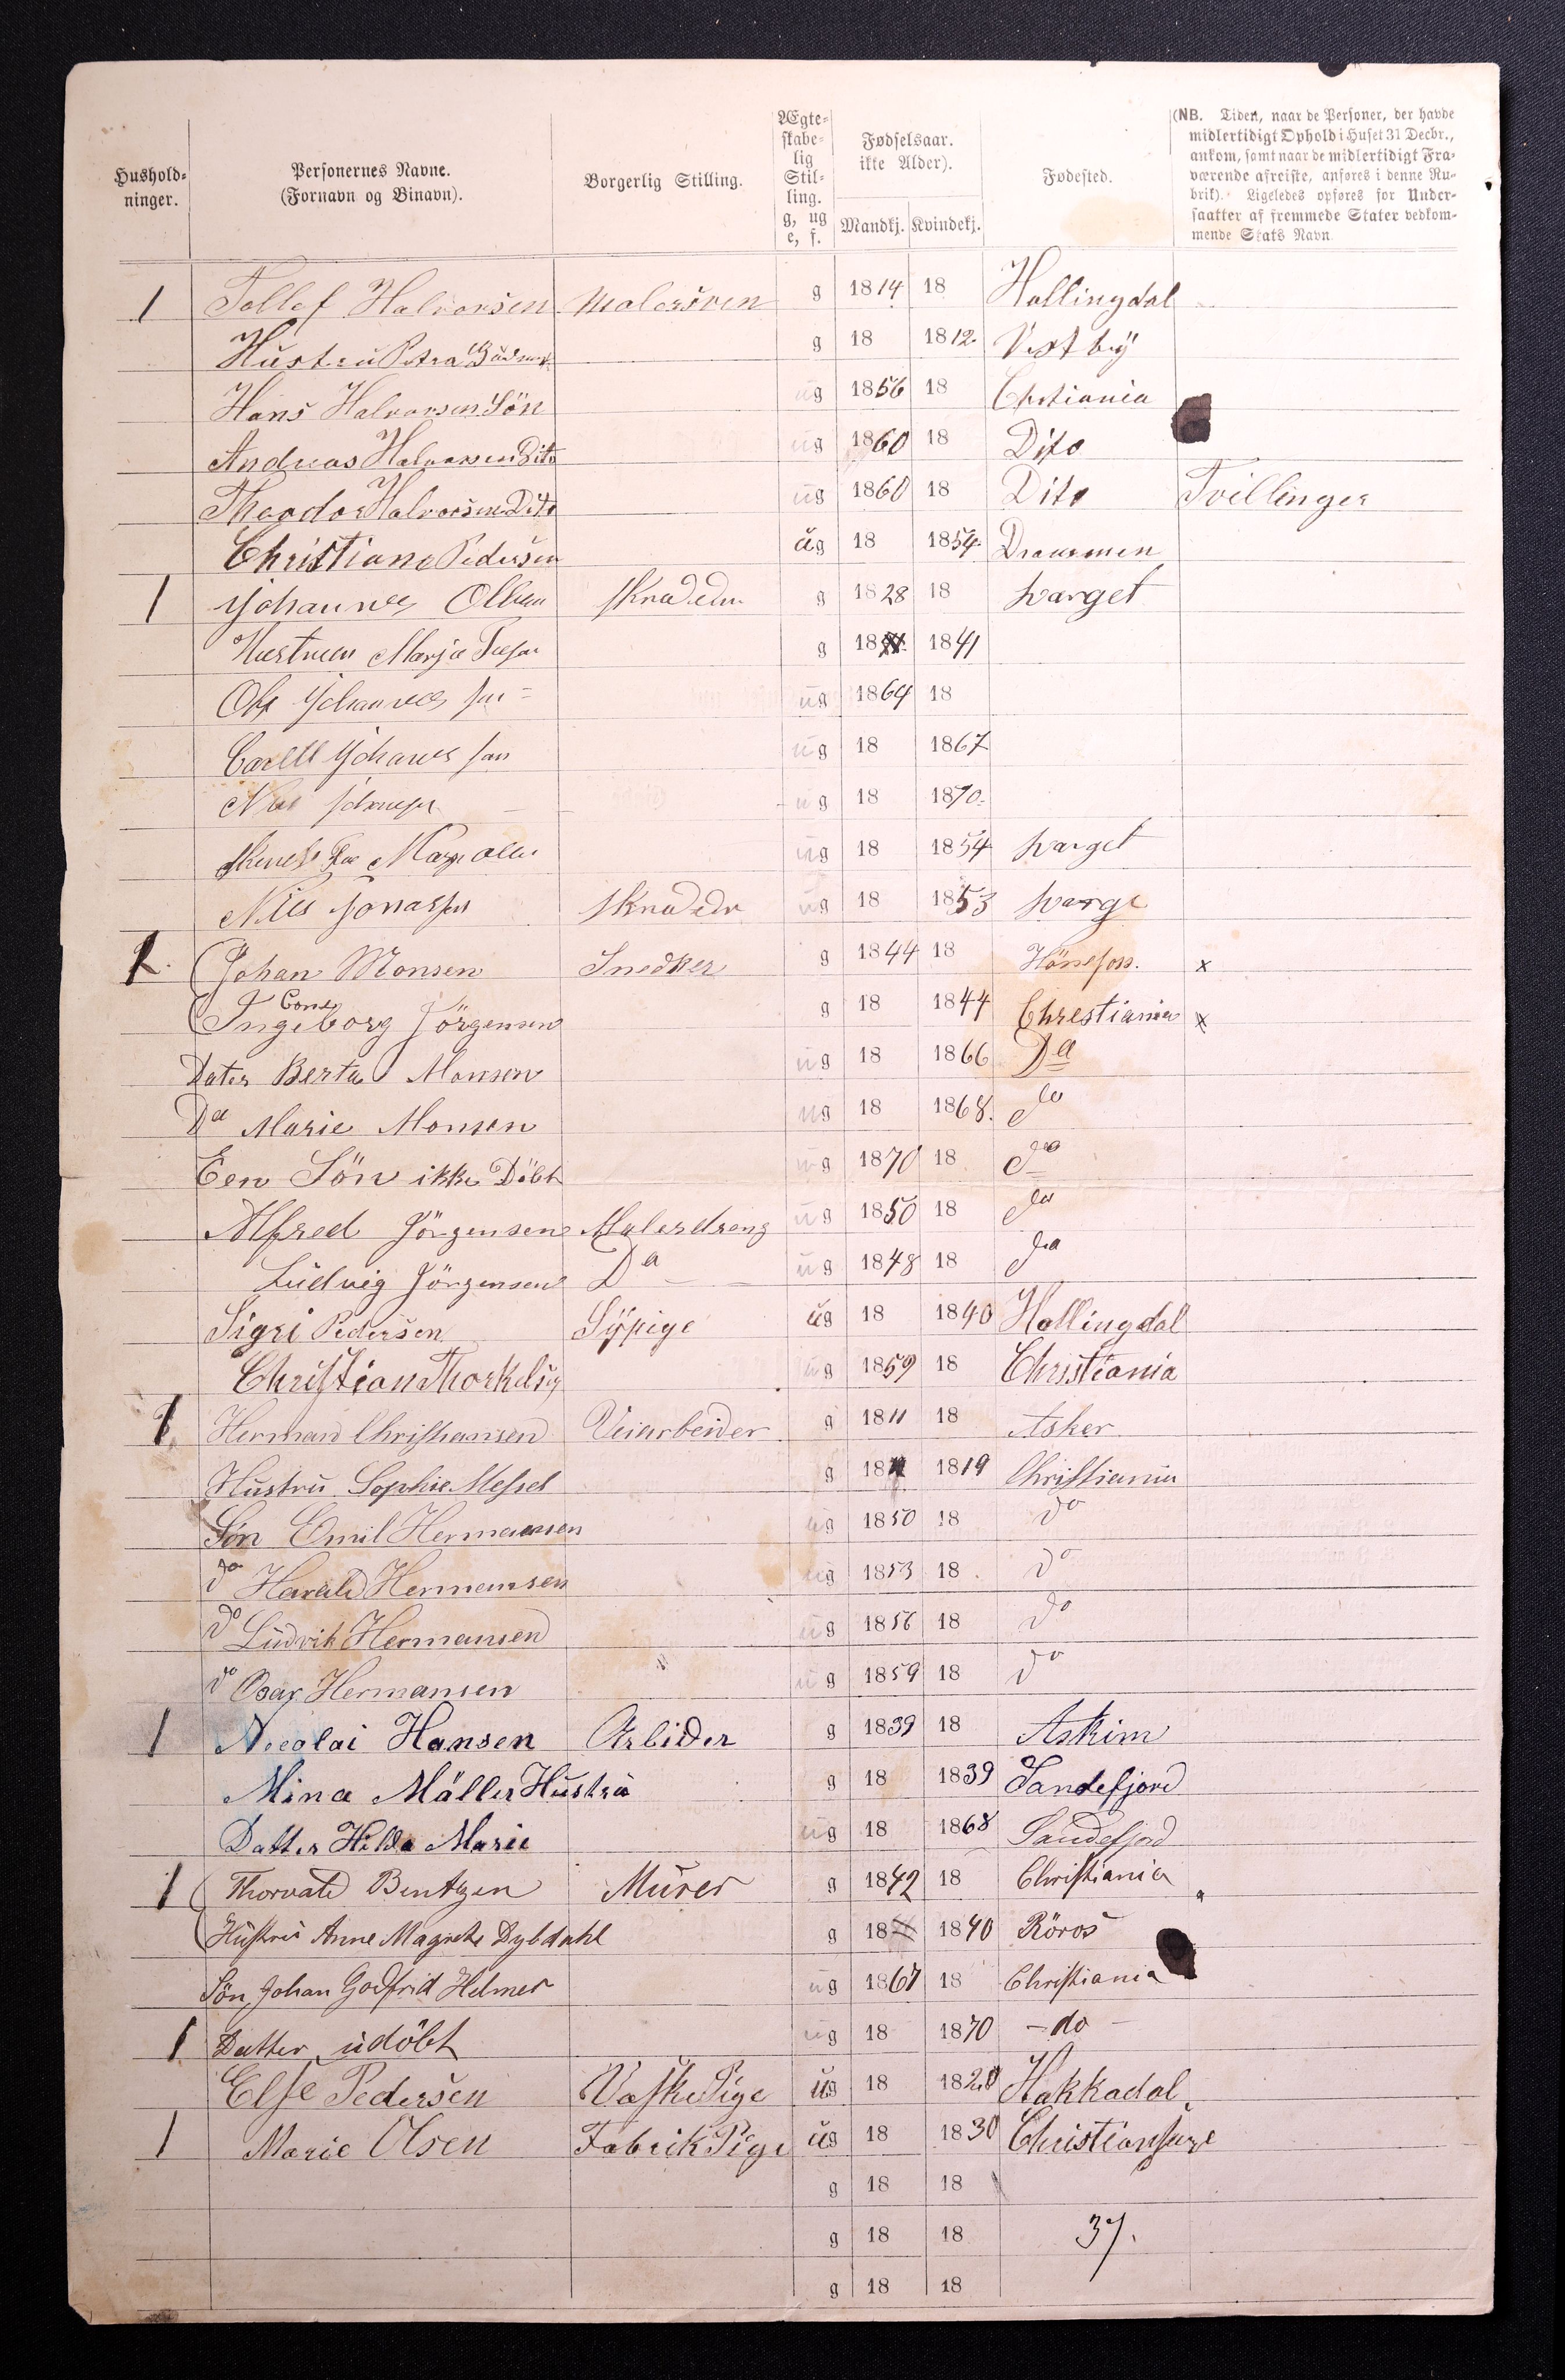 Hushold-
ninger.
Personernes Navne.
(Fornavn og Binavn).
Borgerlig Stilling.
Ægte-
skabe-
lig
Stil-
ling.
g, ug
e, f.
Fødselsaar.
ikke Alder).
Mandkj. Kvindekj.
Fødested.
(NB. Tiden, naar de Personer, der havde
midlertidigt Ophold i Huset 31 Decbr.,
ankom, samt naar de midlertidigt Fra-
værende afreiste, anføres i denne Ru-
brik). Ligeledes opføres for Under-
saatter af fremmede Stater vedkom-
mende Stats Navn.
1 Tollef Halvorsen Malersven g 1814 18 Hallingdal
Hustru Petra g 18 1812. Vestby
Hans Halvorsen Sön ug 1856 18 Chrtiania
Andreas Halvorsen Dito ug 1860 18 Dito
Theodor Halvorsen Dito ug 1860 18 Dito Tvillinger
Christiane Pedersen ug 18 1854. Drammen
1 Johannes Ollsen skradedr g 1828 18 svarget
Hustruen Marja g 18 1841
Ole Johannes sen ug 1864 18
Carell Johanes san ug 18 1867
ug 18 1870.
Marje Olsen ug 18 1854 svarget
Nils Jonassen skradedr ug 18 1853 svarge
1. Johan Monsen Snedker g 1844 18 Hönefoss. x
Cone
Ingeborg Jörgensen g 18 1844 Chrestiania x
Dater Berta Monsen ug 18 1866 Do
Do Marie Monsen ug 18 1868. do
Een Sön ikke Döbt ug 1870 18 do
Alfred Jörgensen Malerdreng ug 1850 18 do
Ludvig Jörgensen Do ug 1848 18 do
Sigri Pedersen Sÿpige ug 18 1840 Hallingdal
Christian Thorkelsen ug 1859 18 Christiania
1 Herman Christiansen Veiarbeider g 1811 18 Asker
Hustru Sophie Messel g 18 1819 Christiania
Sön Emil Hermansen ug 1850 18 do
do Harald Hermansen ug 1853 18 do
do Ludvik Hermansen ug 1856 18 do
do Osar Hermansen ug 1859 18 do
1 Nicolai Hansen Arbider g 1839 18 Askim
Mina Möller Hustru g 18 1839 Sandefjord
Datter Hilda Marie ug 18 1868 Sandefjord
1 Thorvald Bentzen Murer g 1842 18 Christiania
Hustru Anne Magrete Dybdahl g 18 1840 Röros
Sön Johan Godfrid Helmer ug 1867 18 Christiania
1 Datter udöbt ug 18 1870 - do -
Else Pedersen Vaske Pige ug 18 1820 Hakkadal
1 Marie Olsen Fabrik Pige ug 18 1830 Christiansund
g 18 18
g 18 18 37.
g 18 18